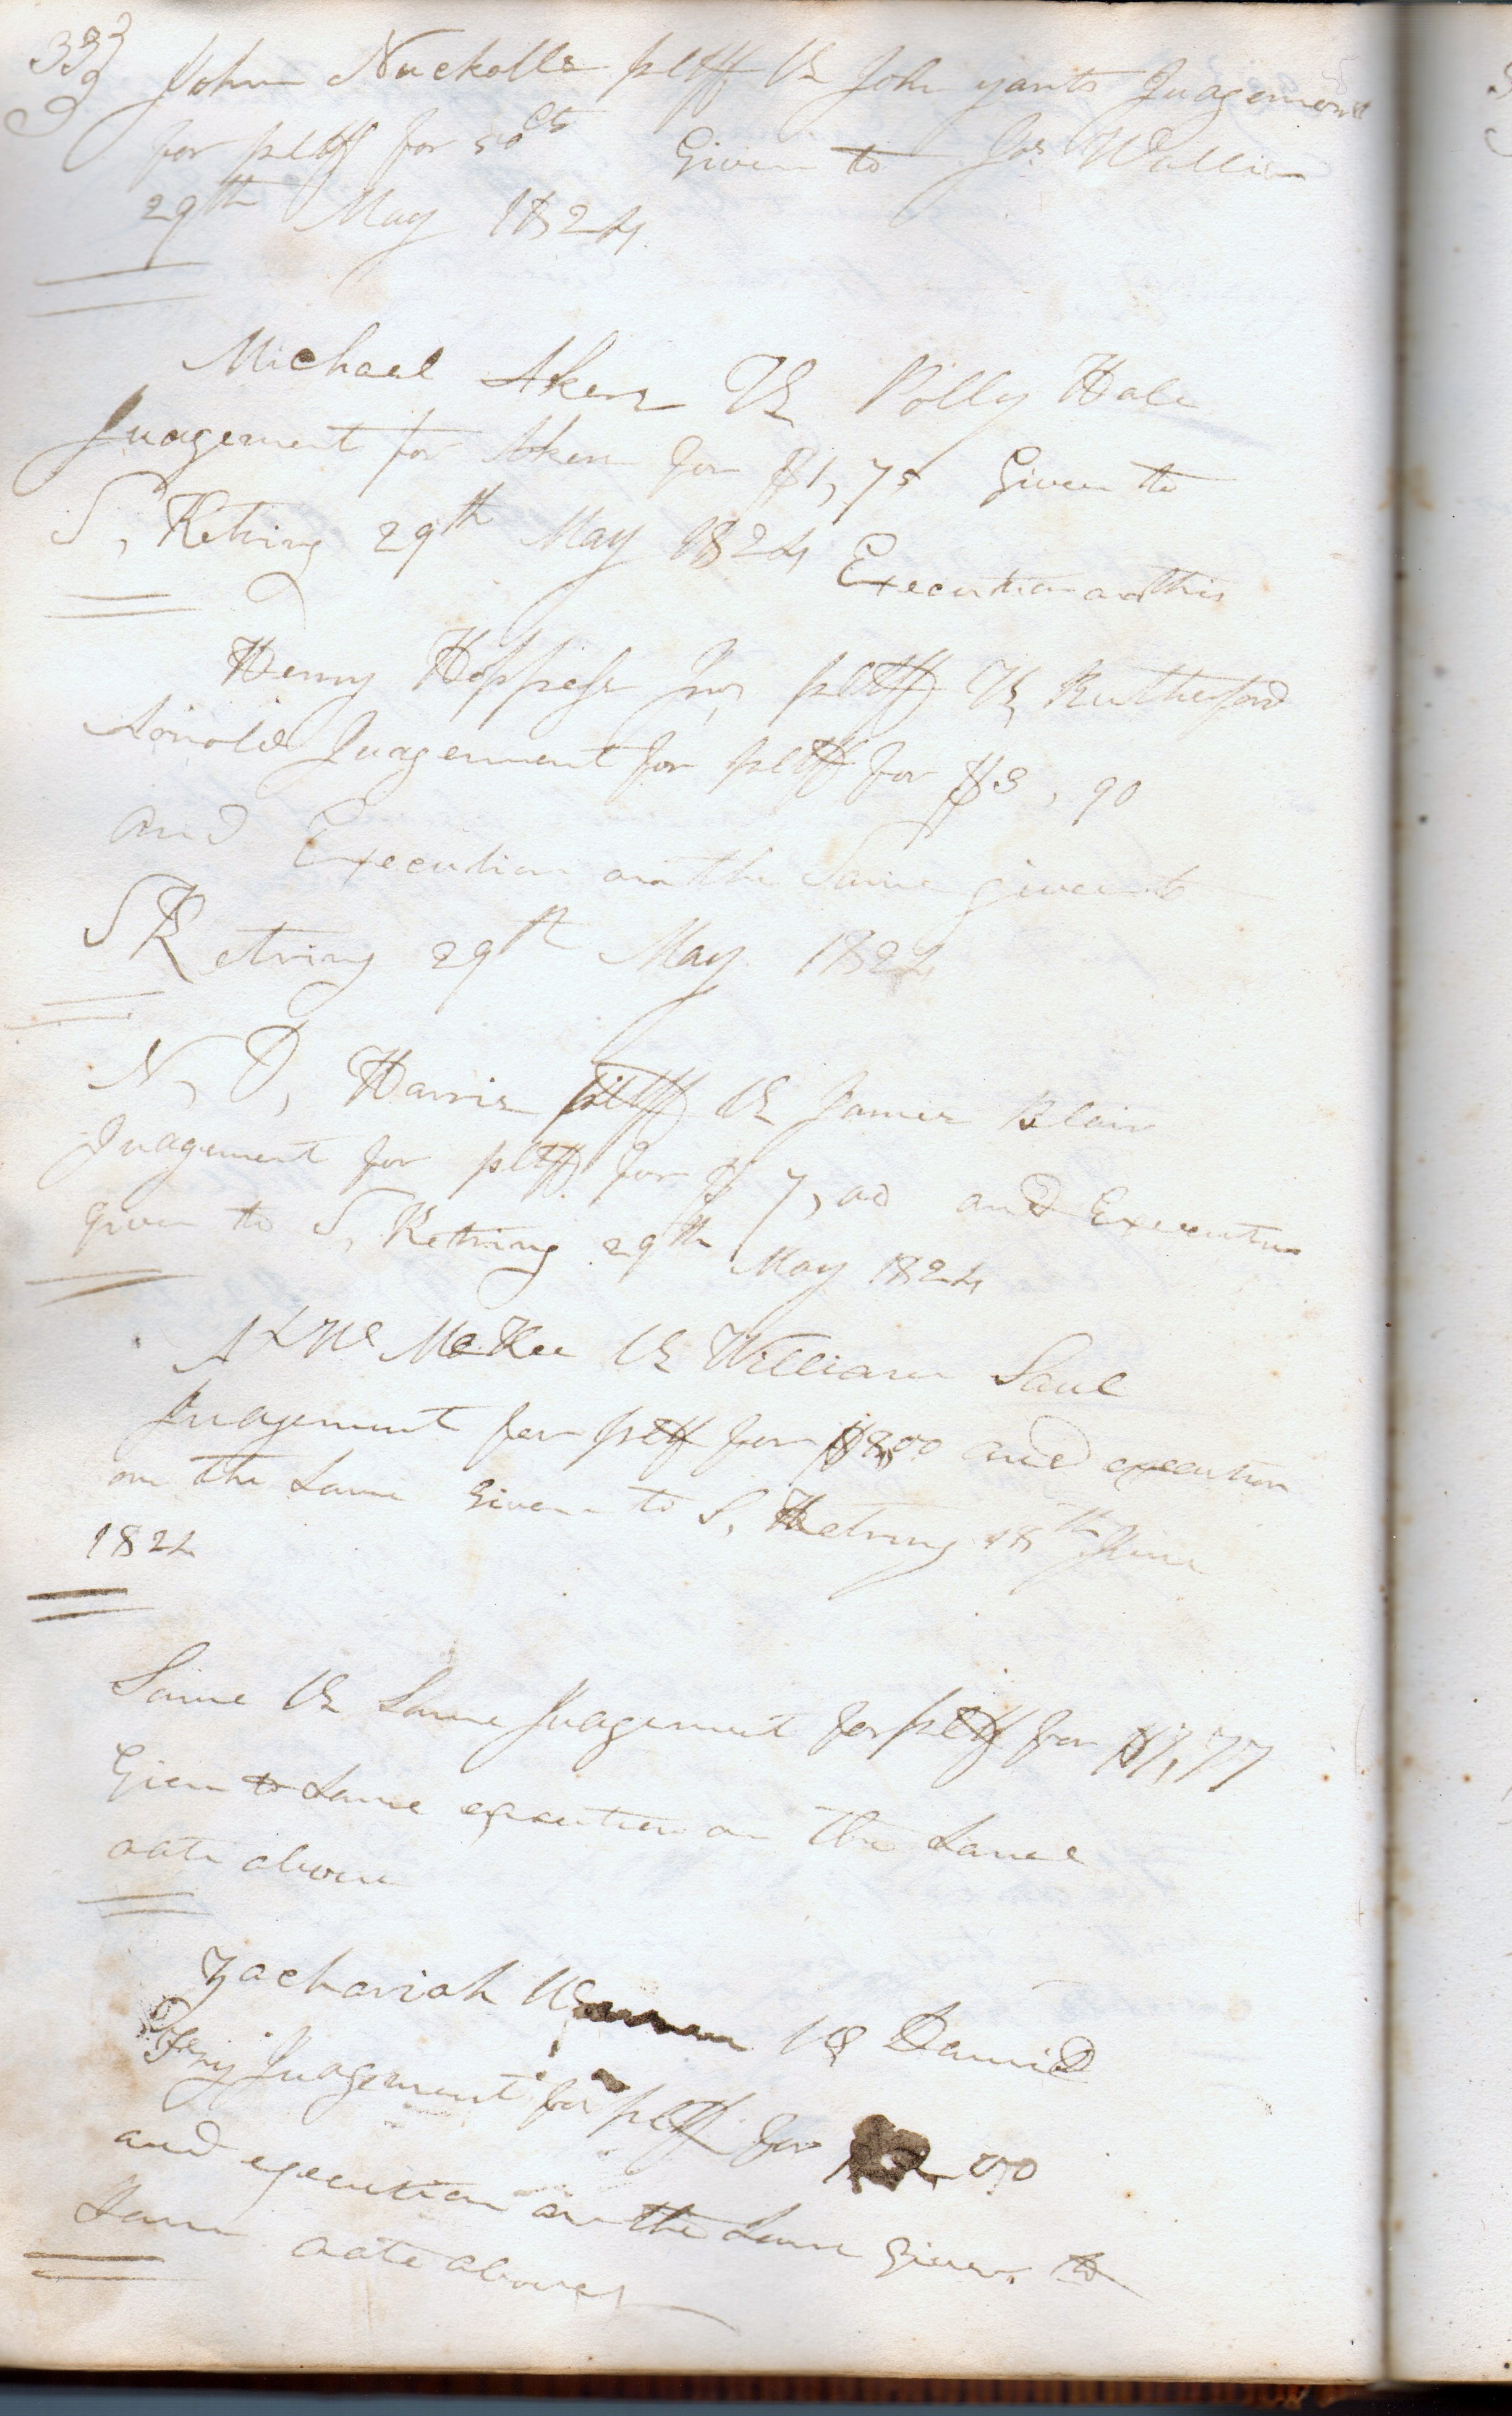 333
John Nuckolls pltff VS John yants Judgement
for pltff for 50cts Given to Jas Wallin
29th May 1824
Michael Akers VS Polly Hale
Judgement for Akers for $1,75 Given to
S, Ketring 29th May 1824 Execution on this
Henry Hoppess Jnr pltff VS Rutherford
Arnold Judgement for pltff for $3,90
and Execution on the Same given to
S Ketring 29th May 1824
N, D, Harris pltff VS James Blair
Judgement for pltff for $7,00 and Execution
given to S, Ketring 29th May 1824
McKee VS William Saul
Judgement for pltff for and execution
on the Same Given to S, Ketring 18th June
1824
Same VS Same Judgement for pltff for
Given to Same execution on the Same
date above
Zachariah VS
Judgement for pltff for 00
and execution on the Same Given to
Same date above